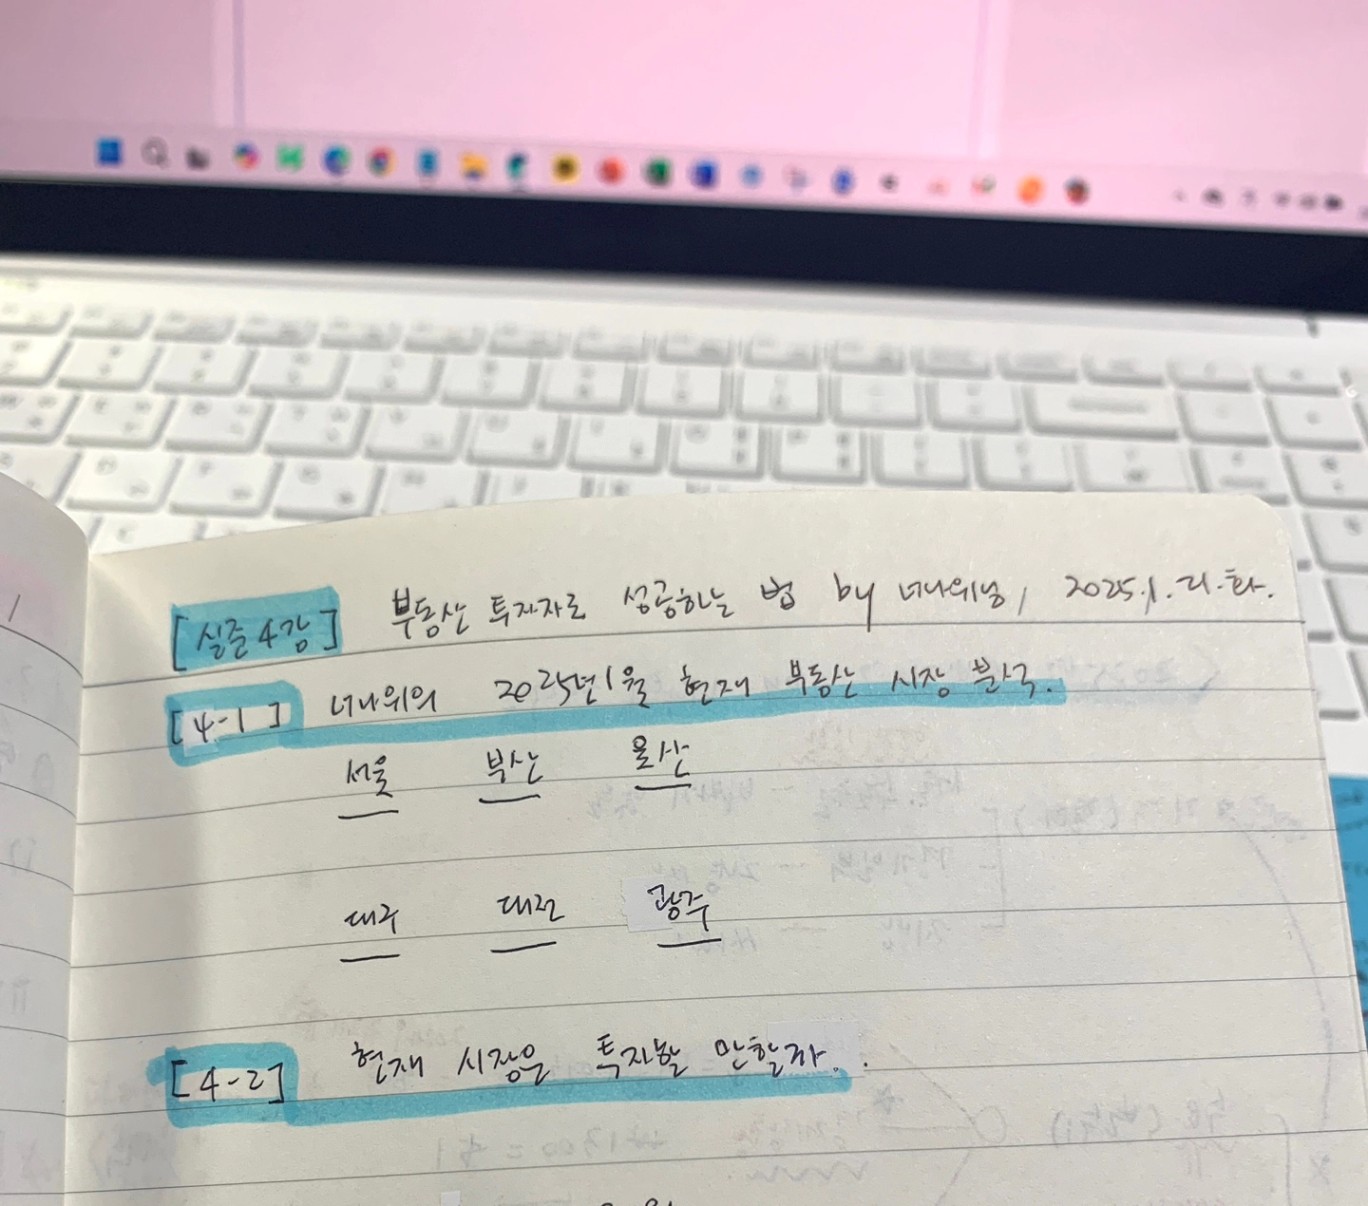 [실준 4강] 부동산 투자자로 성공하는 법 by 너나위님, 2025.1.21.화.
[4-1] 너나위의 2025년 1월 현재 부동산 시장 분석.
서울 부산 울산
대구 대전 광주
[4-2] 현재 시장은 투자할 만할까.